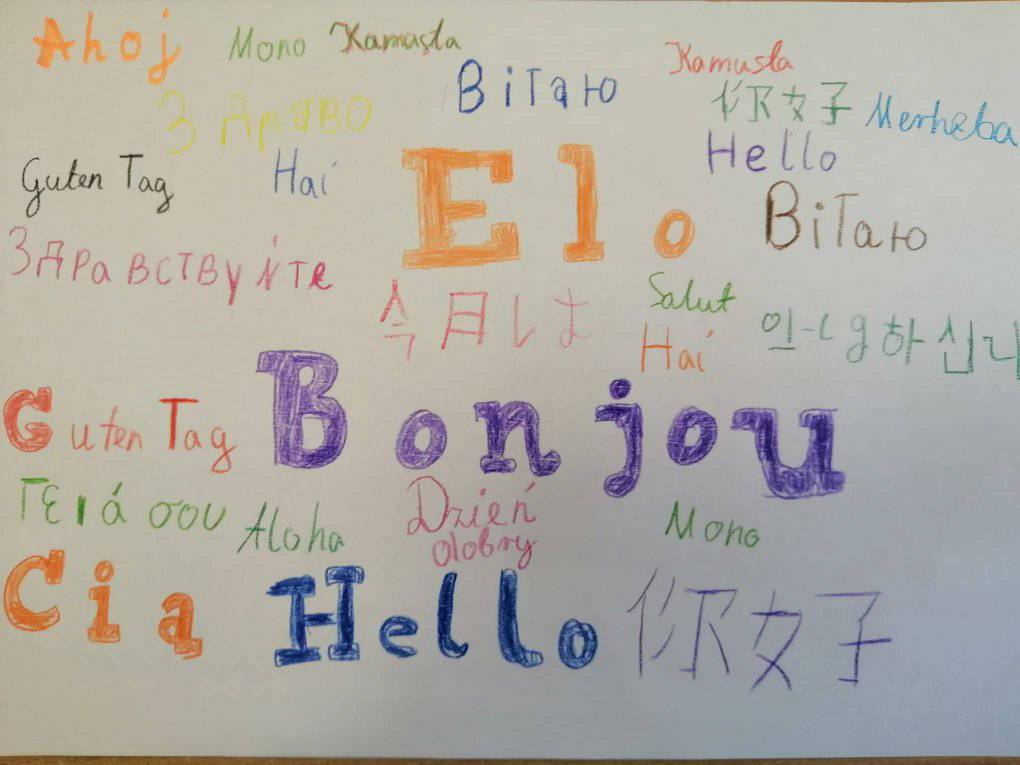 Ahoj Mono Kamusta
Kamusta
Вітаю
你好 Merheba
З Драво
Hello
Guten Tag Hai
Elo
Вітаю
Здравствуйте
今日は
Salut
Hai
안녕하십니
Guten Tag
Bonjou
Γειά σου
Aloha
Dzień
dobry
Mono
Cia
Hello
你好